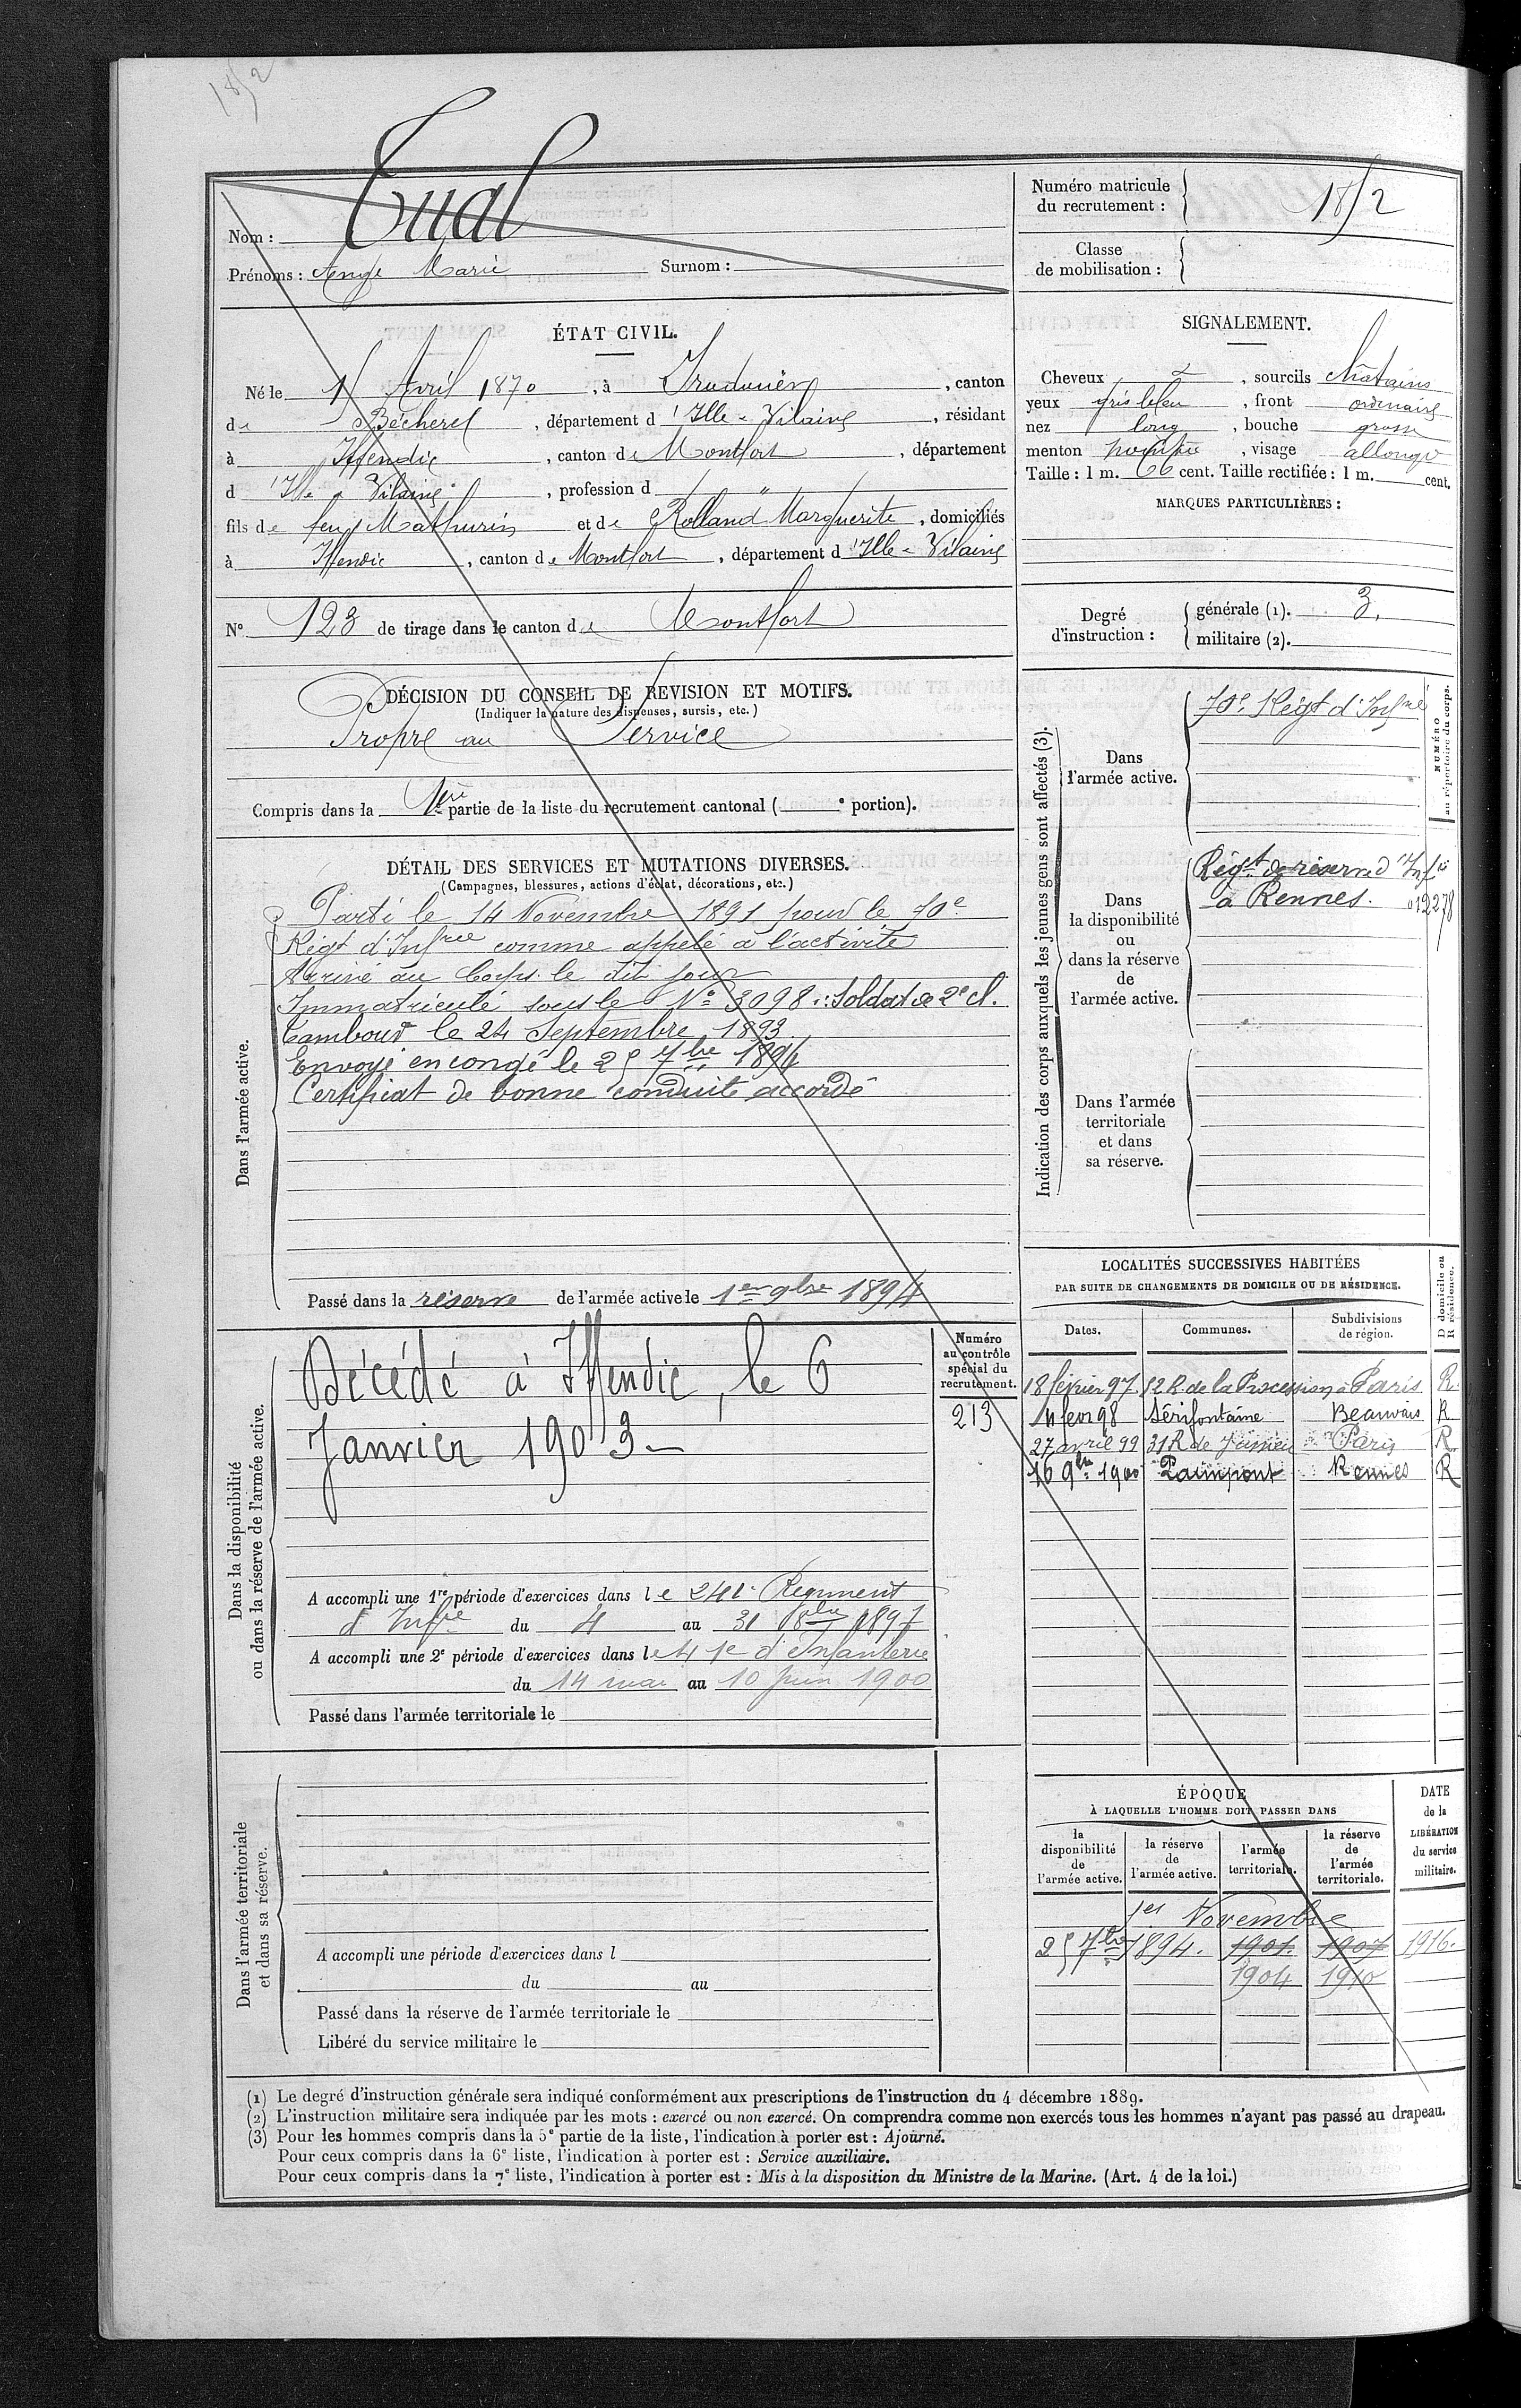 Tual
Nom :
Prénoms : Ange Marie Surnom :
Numéro matricule du recrutement :
Classe de mobilisation :
ÉTAT CIVIL.
Né le Avril 1870, à Irodouër, canton
de Bécherel, département d'Ille & Vilaine, résidant
à Iffendic, canton de Montfort, département
d'Ille & Vilaine, profession d "
fils de feu Mathurin et de Rolland Marguerite, domiciliés
à Iffendic, canton de Montfort, département d'Ille & Vilaine
N° 123 de tirage dans le canton de Montfort
SIGNALEMENT.
Cheveux &, sourcils châtains
yeux gris bleu, front ordinaire
nez long, bouche grosse
menton pointu, visage allongé
Taille : 1 m. 66 cent. Taille rectifiée : 1 m. cent.
MARQUES PARTICULIÈRES :
Degré d'instruction : générale (1). 3.
militaire (2).
DÉCISION DU CONSEIL DE REVISION ET MOTIFS.
(Indiquer la nature des dispenses, sursis, etc.)
Propre au Service
Compris dans la 1ère partie de la liste du recrutement cantonal ( e portion).
DÉTAIL DES SERVICES ET MUTATIONS DIVERSES.
(Campagnes, blessures, actions d'éclat, décorations, etc.)
Dans l'armée active.
Parti le 14 Novembre 1891 pour le 70e
Régt d'Infrie comme appelé à l'activité
Arrivé au Corps le dit jour
Immatriculé sous le N° 3098. Soldat de 2e cl.
Tambour le 24 Septembre 1893
Envoyé en congé le 25 7bre 1894
Certificat de bonne conduite accordé
Passé dans la réserve de l'armée active le 1er 9bre 1894
Indication des corps auxquels les jeunes gens sont affectés (3).
NUMÉRO au répertoire du corps.
Dans l'armée active.
70e Régt d'Infrie
Dans la disponibilité ou dans la réserve de l'armée active.
Régt de réserve d'Infie
à Rennes. 012278
Dans l'armée territoriale et dans sa réserve.
Dans la disponibilité ou dans la réserve de l'armée active.
Décédé à Iffendic, le 6
Janvier 1903
Numéro au contrôle spécial du recrutement.
213
A accompli une 1re période d'exercices dans le 241e Régiment
d'Infie du 4 au 31 8bre 1897
A accompli une 2e période d'exercices dans le 41e d'Infanterie
du 14 mai au 10 Juin 1900
Passé dans l'armée territoriale le
LOCALITÉS SUCCESSIVES HABITÉES
PAR SUITE DE CHANGEMENTS DE DOMICILE OU DE RÉSIDENCE.
Dates. Communes. Subdivisions de région. D domicile ou R résidence.
18 février 97 12 R. de la Procession à Paris R
4 fevr 98 Sérifontaine Beauvais R
27 avril 99 31 R de Paris R
16 9bre 1900 Paimpont Rennes R
Dans l'armée territoriale et dans sa réserve.
A accompli une période d'exercices dans l
du au
Passé dans la réserve de l'armée territoriale le
Libéré du service militaire le
ÉPOQUE
À LAQUELLE L'HOMME DOIT PASSER DANS
la disponibilité de l'armée active. la réserve de l'armée active. l'armée territoriale. la réserve de l'armée territoriale. DATE de la LIBÉRATION du service militaire.
1er Novembre
25 7bre 1894. 1901. 1907 1916.
1904 1910
(1) Le degré d'instruction générale sera indiqué conformément aux prescriptions de l'instruction du 4 décembre 1889.
(2) L'instruction militaire sera indiquée par les mots : exercé ou non exercé. On comprendra comme non exercés tous les hommes n'ayant pas passé au drapeau.
(3) Pour les hommes compris dans la 5e partie de la liste, l'indication à porter est : Ajourné.
Pour ceux compris dans la 6e liste, l'indication à porter est : Service auxiliaire.
Pour ceux compris dans la 7e liste, l'indication à porter est : Mis à la disposition du Ministre de la Marine. (Art. 4 de la loi.)